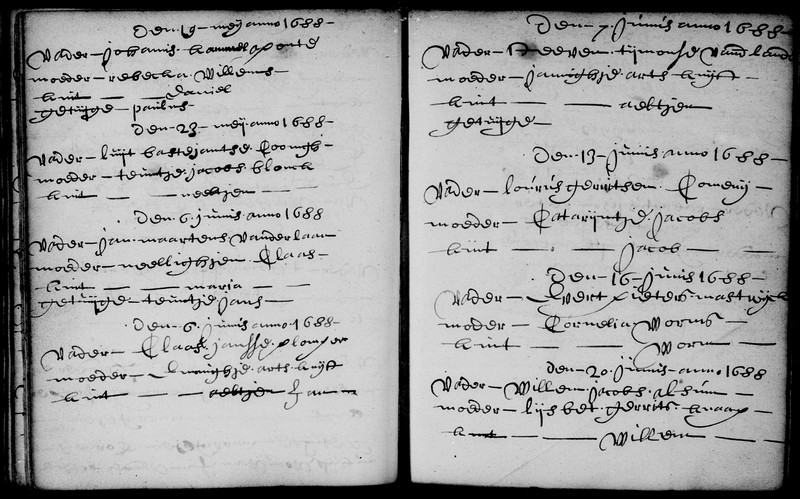 Den 19 meij anno 1688
Vader johanis
moeder rebecka Willems
kint Daniel
getuijge paulus
Den 23 meij anno 1688
Vader luijt bastejaentse
moeder teuntje jacobs block
kint neeltjen
Den 6 junis anno 1688
Vader jan maartens Vanderlaan
moeder neellighjen Claas
kint maria
getuijge teuntje jans
Den 6 junis anno 1688
Vader Claas jansse
moeder arts
kint aeltjen jan
Den 7 junis anno 1688
Vader Steeven tijmonse
moeder jannighje arts
kint aeltjen
getuijge
Den 13 junis anno 1688
Vader lourus gerritsen
moeder Catarijntje jacobs
kint jacob
Den 16 junis 1688
Vader Evert pieters mastwijck
moder Cornelia Worms
kint Worm
Den 20 junis anno 1688
Vader Willem jacobs
moeder lijsbet gerrits knaap
kint Willem